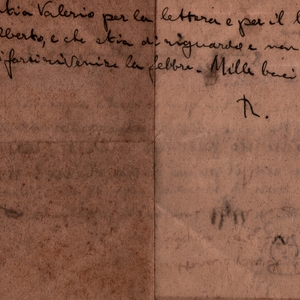 Valerio per la lettera e per il
Alberto, e che stia di riguardo e non
farsi rivenire la febbre. Mille baci
R.